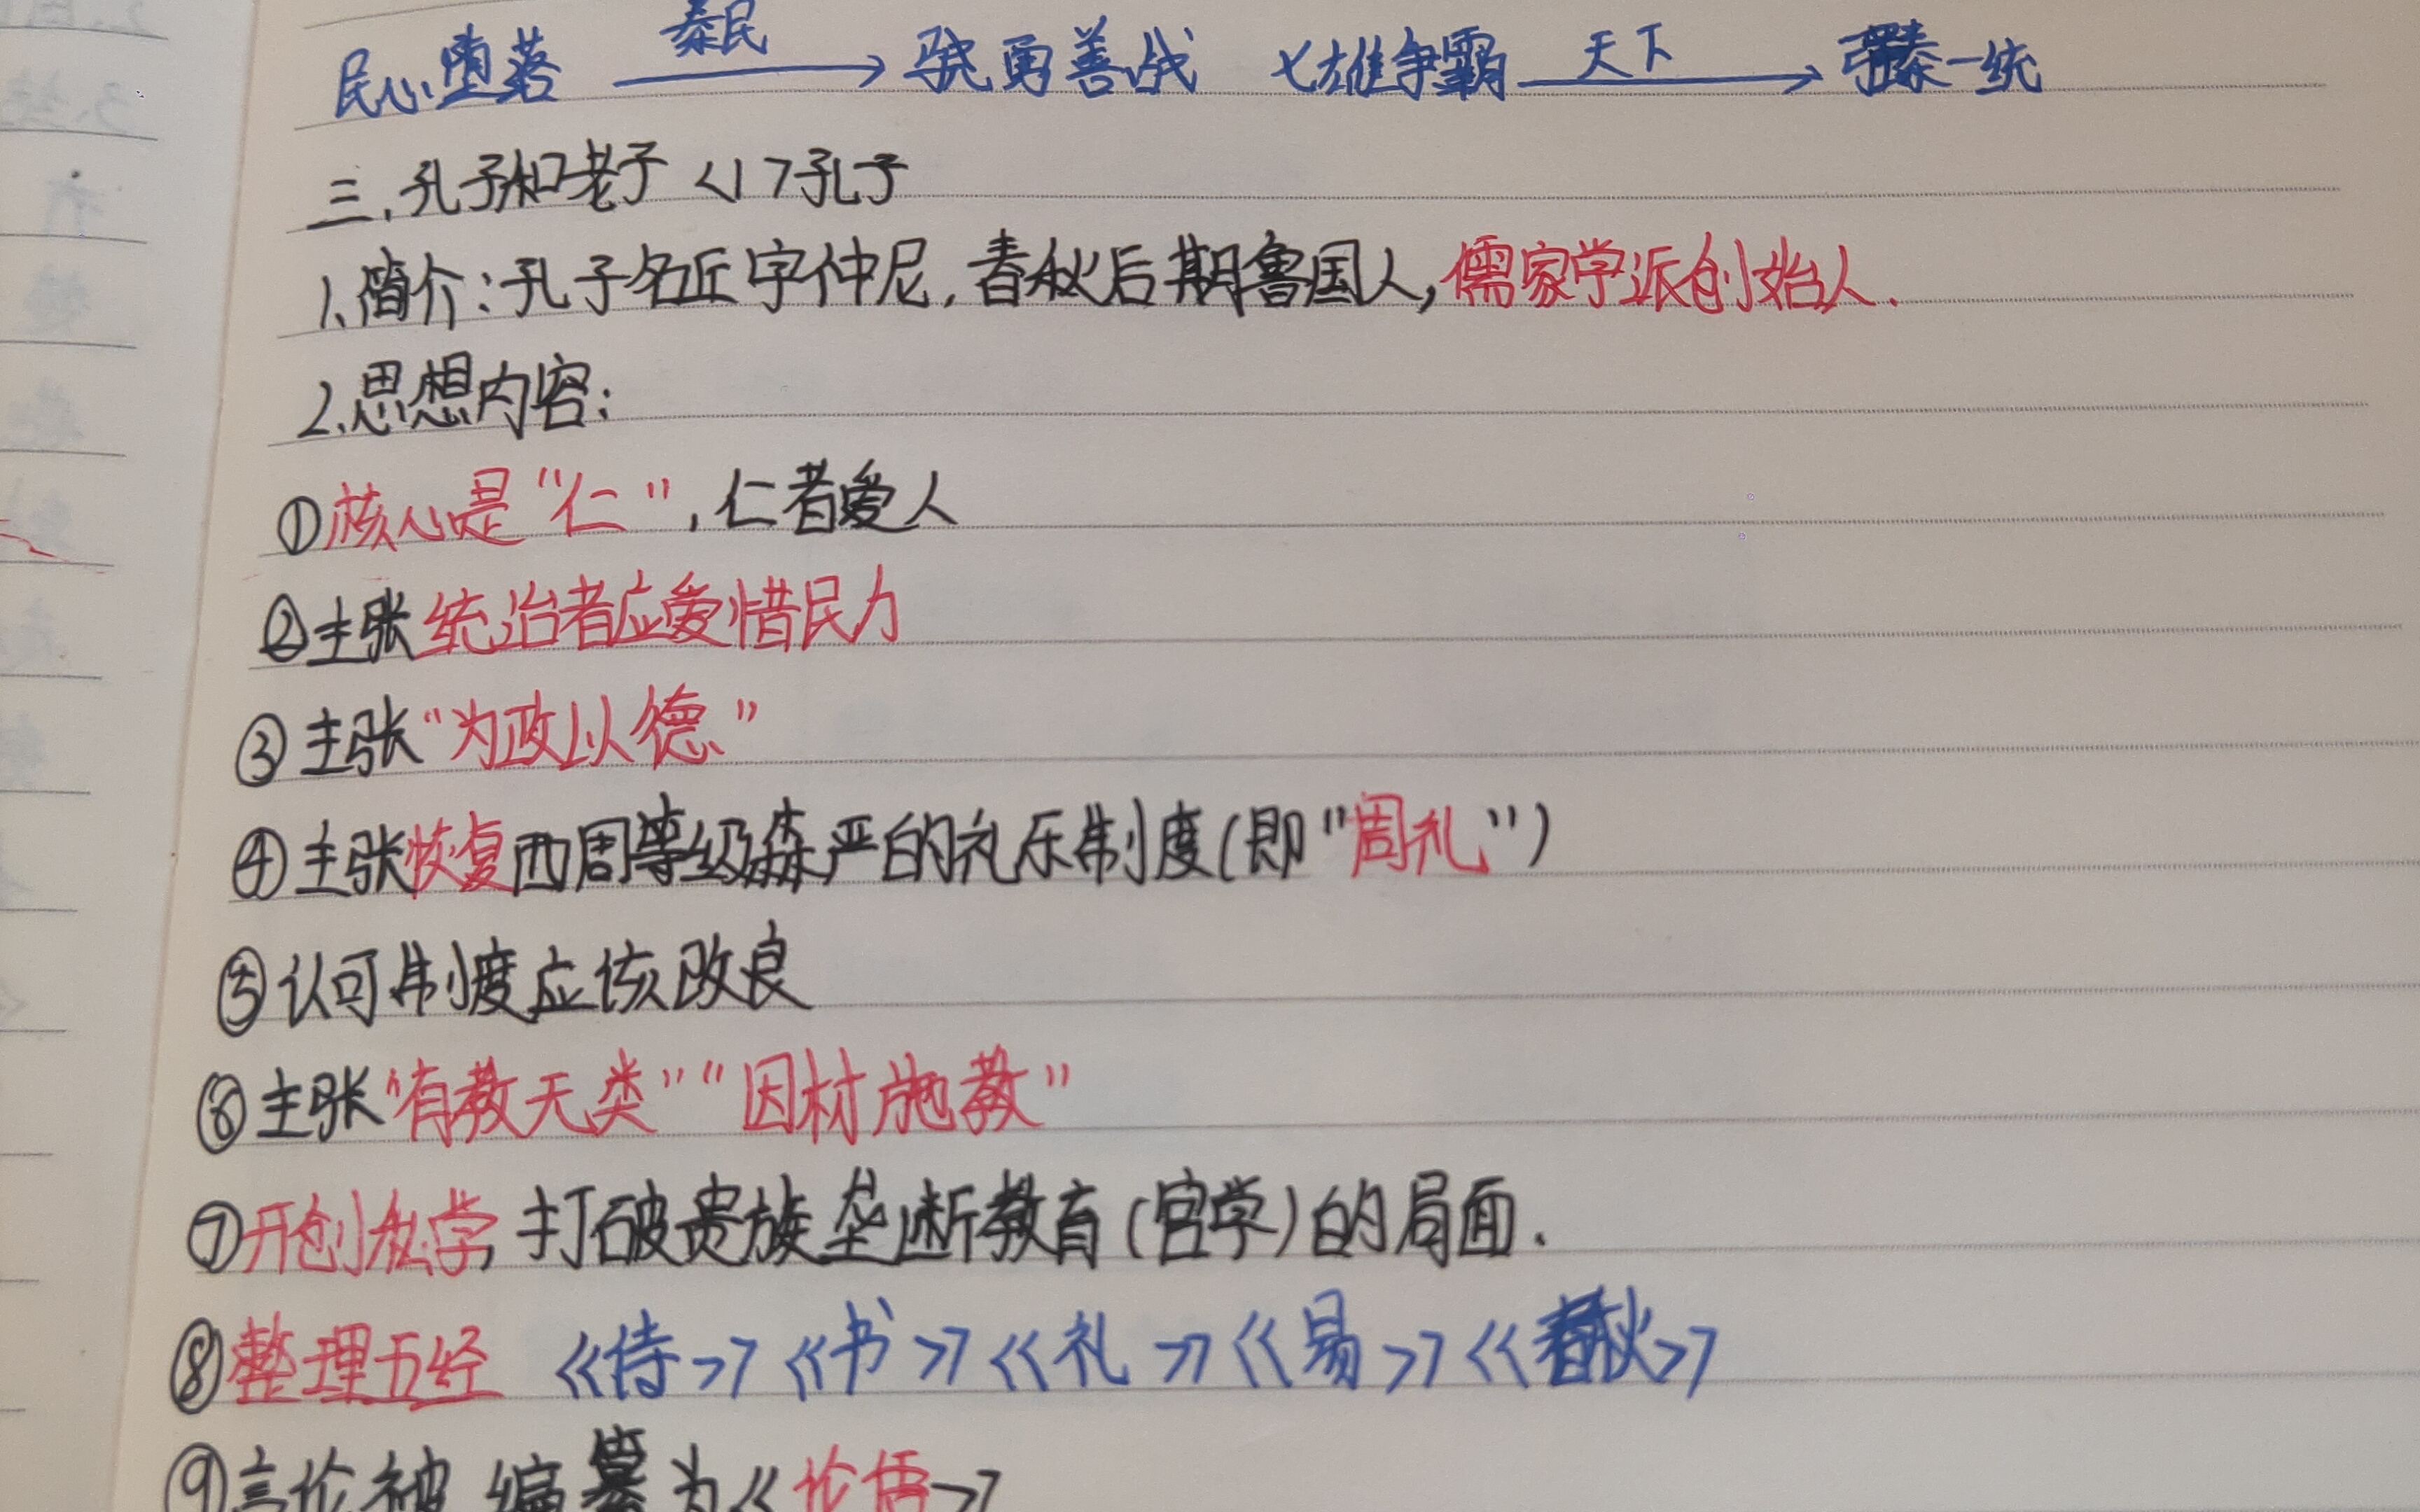 民心堕落 秦民→ 骁勇善战 七雄争霸 天下→ 强秦一统
三、孔子和老子 <1>孔子
1、简介:孔子名丘字仲尼,春秋后期鲁国人,儒家学派创始人.
2、思想内容:
①核心是“仁”,仁者爱人
②主张统治者应爱惜民力
③主张“为政以德”
④主张恢复西周等级森严的礼乐制度(即“周礼”)
⑤认可制度应该改良
⑥主张“有教无类”“因材施教”
⑦开创私学,打破贵族垄断教育(官学)的局面.
⑧整理五经 《诗》《书》《礼》《易》《春秋》
⑨言论被编纂为《论语》